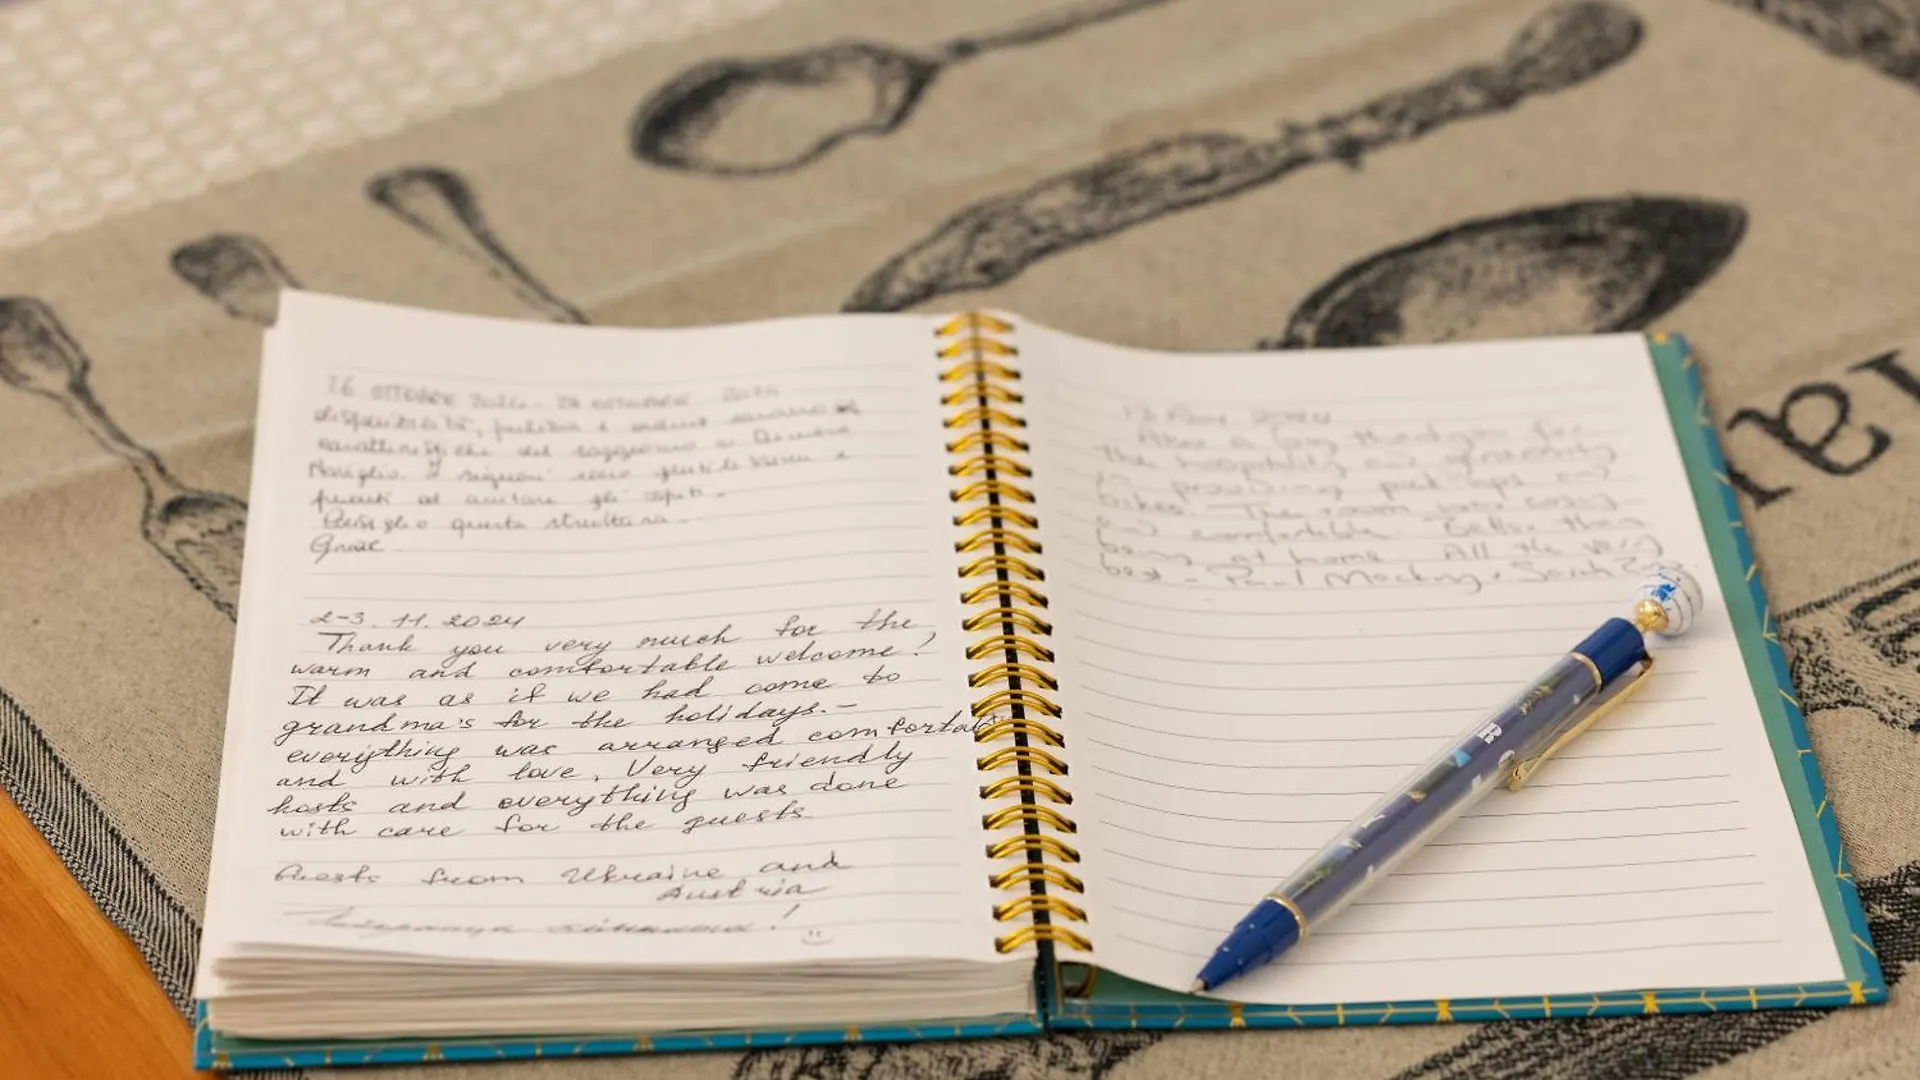 16 OTTOBRE 2024 - 28 OTTOBRE 2024
disponibilità, pulizia e
caratteristiche del soggiorno a Dimora
Naviglio. I signori sono gentilissimi e
pronti ad aiutare gli ospiti.
Consiglio questa struttura.
Grazie.
2-3.11.2024
Thank you very much for the
warm and comfortable welcome!
It was as if we had come to
grandma's for the holidays. -
everything was arranged comfortabl
and with love. Very friendly
hosts and everything was done
with care for the guests.
Guests from Ukraine and
Austria
Nov 2024
After a long Thank you for
the hospitality and generosity
in providing pick-ups and
bikes. The room was cosy
and comfortable. Better than
being at home. All the very
best - Paul Sarah